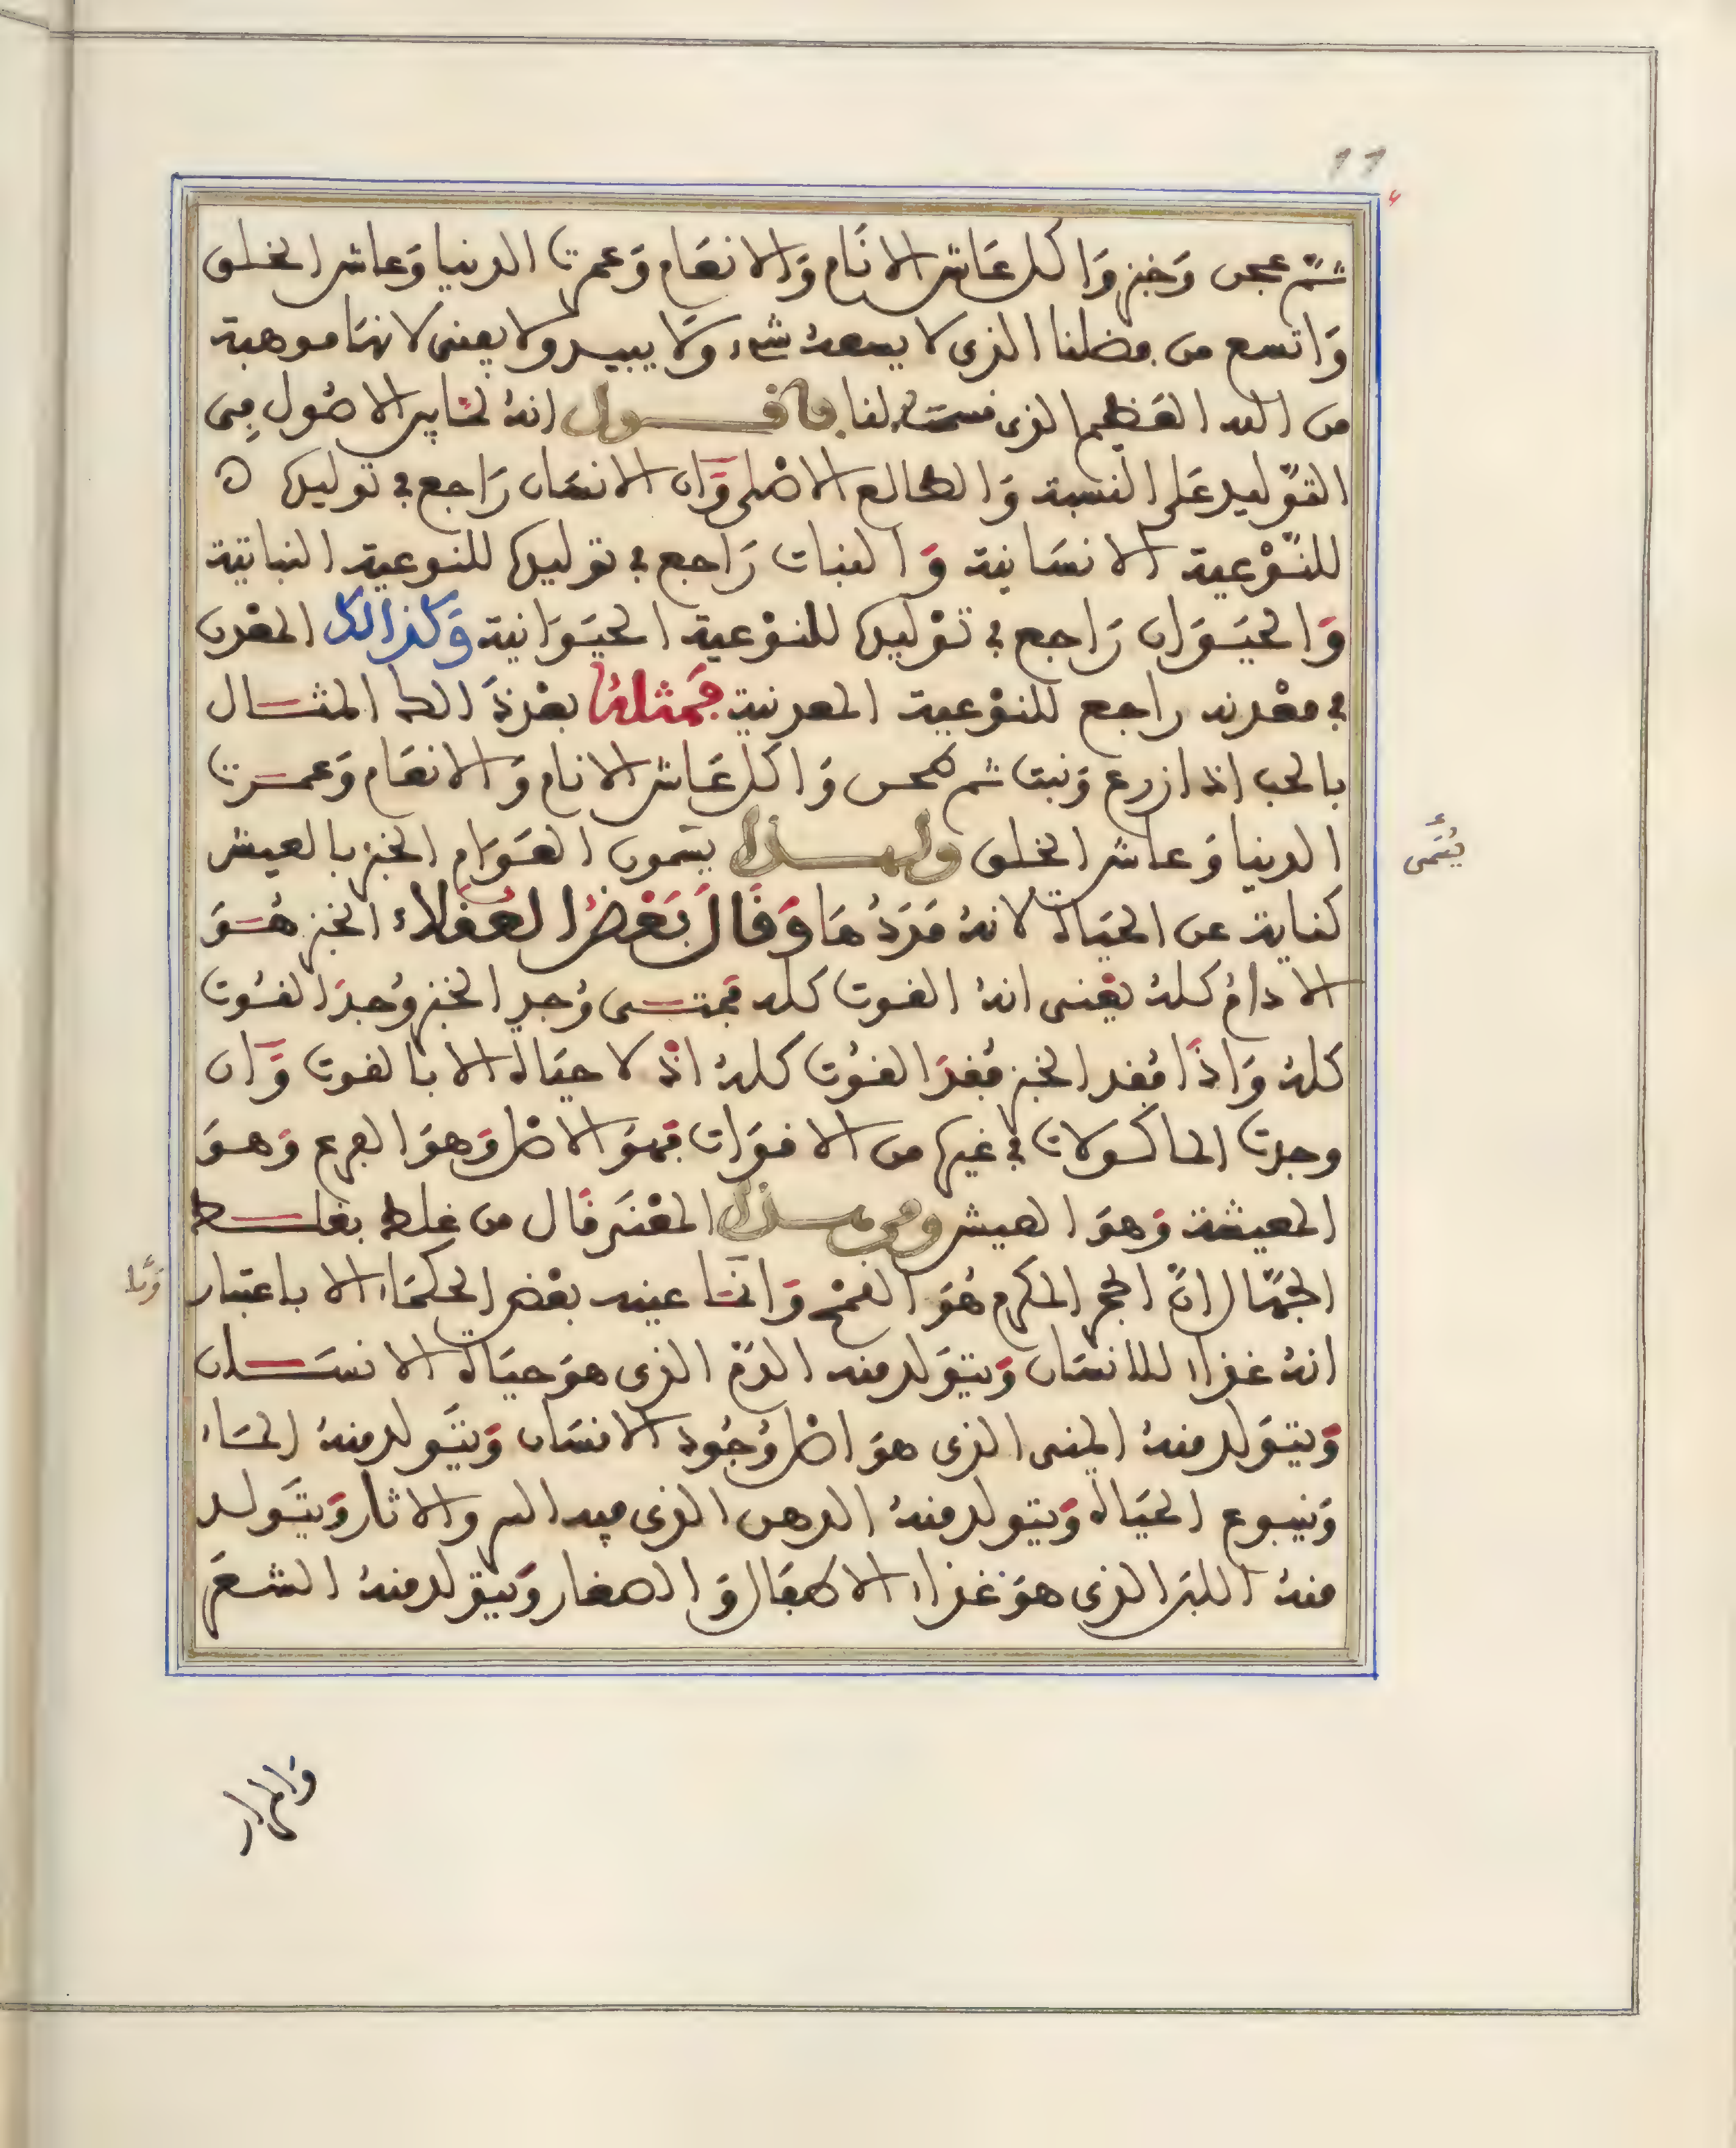 11
ثمّ عجن وَخبز وَاكل عَاش الانَام وَالانعَام وَعمرت الدنيا وَعاش الخلق
وَاتسع من فضلنا الذى لا يسعه شىء وَلا يبيد ولا يفنى لانهَا موهبة
من الله العَظيم الذى قسمت لنا فاقول انهُ لمّا فى الاصُول فِى
التوّليد عَلى النسبة وَالطالع الاصْلى وَان الانسَان رَاجع فى توليده
للنّوْعية الانسَانية وَالنبات رَاجع فى توليده للنوعية النباتية
وَالحيَوَان رَاجع فى توْليده للنوْعية الحيَوَانية وَكذالك المعْدن
فى معْدنه راجع للنوْعية المعدنية فمثلهُ بعْدَ ذَالك المثال
بالحب اذا زرع وَنبت ثم طحن وَاكل عَاش الانام وَالانعَام وَعمرت
الدنيا وَعاش الخلق ولهذا يسَمون العَوَام الخبز بالعيش
كناية عن الحيَاة لانهُ مَرَدُهَا وَقَالَ بَعْضُ العُقلاء الخبز هُوَ
الادامُ كلهُ يعْنى انهُ القوت كله فمتى وُجد الخبز وُجدَ القُوت
كلهُ وَاذَا فُقد الخبز فُقدَ القُوت كلهُ اذ لا حيَاة الا بالقوت وَان
وجدت الماكولات فى غيره من الاقوَات فهوَ الاصْل وَهوَ الفرع وَهوَ
المعيشة وَهوَ العيش ومن هذا المعْنَى قَال من غلط بغلط
الجهّال انّ الحجر المكرم هُوَ القمْح وَانمَا عينه بعْض الحكمَاء الا باعتبار
انهُ غذاء للانسَان وَيتوَلد منه الدّم الذى هوَ حيَاة الانسَان
وَيتوَلد منهُ المنى الذى هوَ اصْل وُجُود الانسَان وَيتَولد منهُ المَاء
وَينبوع الحيَاة وَيتولد منهُ الدهن الذى فيه السر والاثار وَيتَولد
منهُ اللبن الذى هوَ غذاء الاطفَال وَالصغار وَيتولد منهُ الشعَر
يُسَمى
وَالمرار